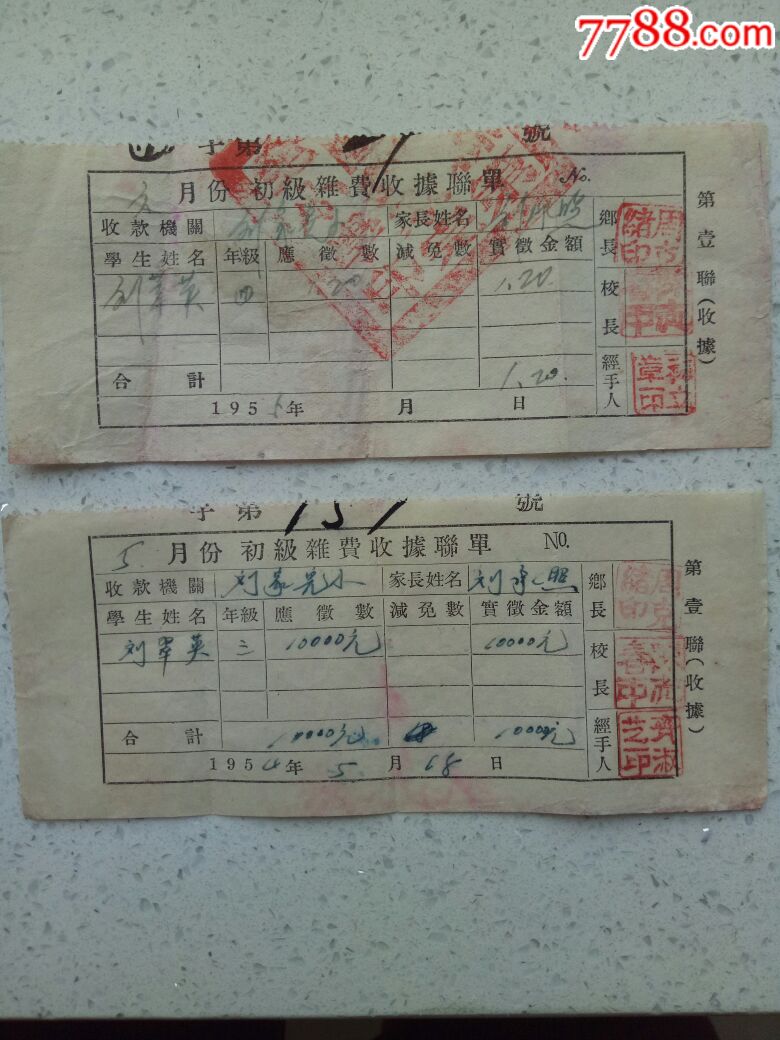 7788.com
字第 號
月份 初級雜費收據聯單 No.
收款機關 家長姓名 鄉長
學生姓名 年級 應徵數 減免數 實徵金額
刘翠英 四 1.20 1.20 校長
合計 1.20. 經手人
1955年 月 日
第壹聯(收據)
字第151號
5.月份 初級雜費收據聯單 No.
收款機關 刘家 小 家長姓名 刘 照 鄉長
學生姓名 年級 應徵數 減免數 實徵金額
刘翠英 三 10000元 10000元 校長
合計 10000元 10000元 經手人
1954年 5 月 18 日
齊淑芝印
第壹聯(收據)